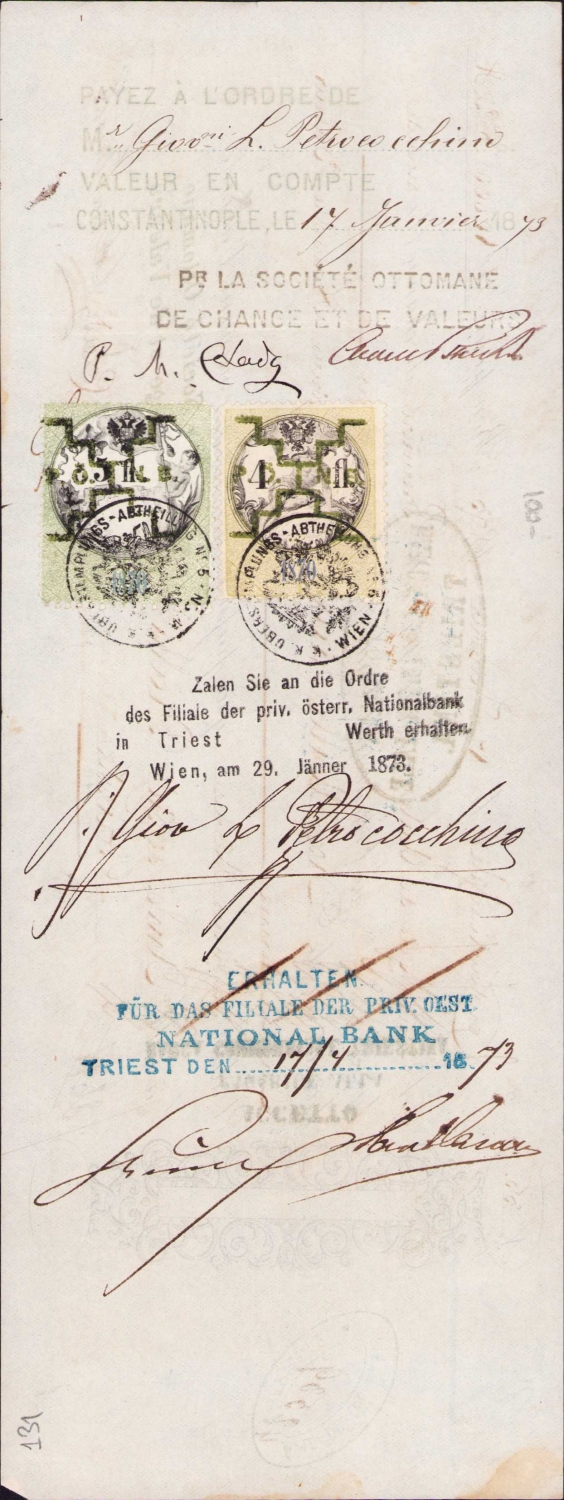 PAYEZ À L'ORDRE DE
Mr Giovni L. Petrococchino
VALEUR EN COMPTE
CONSTANTINOPLE, LE 17 Janvier 1873
PR LA SOCIÉTÉ OTTOMANE
DE CHANGE ET DE VALEURS
5 fl.
P. Ö. N. B.
4 fl.
P. Ö. N. B.
1870
K. K. ÜBERSTEMPLUNGS-ABTHEILUNG No 5
K. K. ÜBERSTEMPLUNGS-ABTHEILUNG No 5 · WIEN ·
100-
Zalen Sie an die Ordre
des Filiale der priv. österr. Nationalbank
in Triest Werth erhalten.
Wien, am 29. Jänner 1873.
p. Giov L Petrococchino
ERHALTEN.
FÜR DAS FILIALE DER PRIV. OEST.
NATIONAL BANK
TRIEST DEN 17/4 1873
131